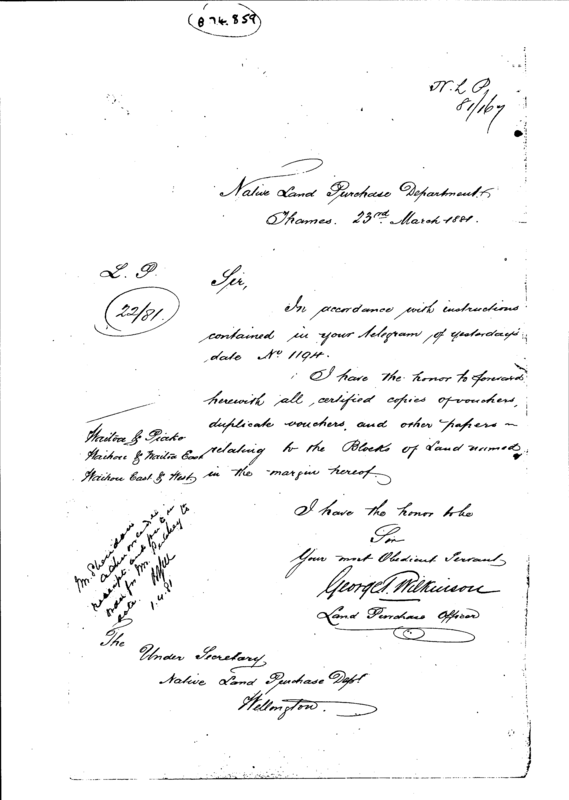 874.859
N. L. P.
81/167
Native Land Purchase Department
Thames. 23rd March 1881.
L. P.
22/81.
Sir,
In accordance with instructions
contained in your telegram of yesterday's
date No 1194.
I have the honor to forward
herewith all certified copies of vouchers,
duplicate vouchers, and other papers –
relating to the Blocks of Land named
in the margin hereof.
Waitoa & Piako
Waihou & Waitoa East
Waihou East & West
I have the honor to be
Sir
Your most Obedient Servant
George T. Wilkinson
Land Purchase Officer
Mr. Sheridan
receipt and
order for Mr.
1.4.81
The
Under Secretary
Native Land Purchase Dept.
Wellington.